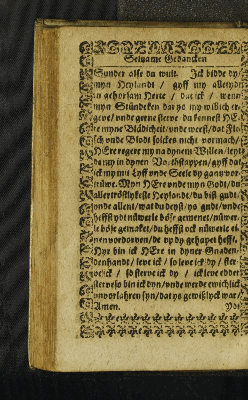 Selzame Gedancken
Sunder alse du wult. Ick bidde dy
myn Heylandt / gyff my alletydt
ein gehorsam Herte / dat ick / wenn
myn Stündeken dar is my willich er=
geve / unde gerne sterve du kennest HE=
re myne Blödicheit / unde weest / dat Fle=
sch unde Blodt solckes nicht vormach /
HEre regere my na dynem Willen / leyde
de my in dynen Radtslagen / gyff dat
ick my mit Lyff unde Seele dy gantz vor=
trüwe. Myn HEre unde myn Godt / du
allertröstlykeste Heylandt / du bist gudt /
unde allent / wat du deyst ys gudt / unde
heffst ydt nüwerle böse gemenet / nüwer=
le böse gemaket / du heffst ock nüwerle ei=
nen vordorven / de up dy gehapet hefft.
Hyr bin ick HEre in dyner Gnaden=
denhandt / leve ick / so leve ick dy / ster=
ve ick / so sterve ick dy / ick leve edder
sterve so bin ick dyn / unde werde ewichlick
unvorlahren syn / dat ys gewißlyck war /
Amen.